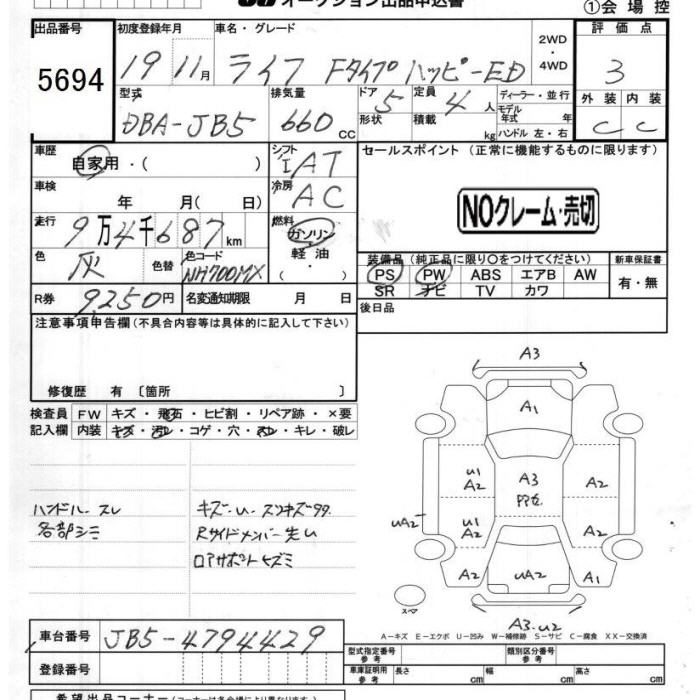 オークション出品申込書
①会場控
出品番号 初度登録年月 車名・グレード 2WD・4WD 評価点
5694 19 11月 ライフ Fタイプ ハッピーED 3
型式 排気量 ドア 定員 ディーラー・並行 外装 内装
DBA-JB5 660 CC 5 4人 モデル年式 年 C C
形状 積載 kg ハンドル 左・右
車歴 自家用・( ) シフト IAT セールスポイント (正常に機能するものに限ります)
車検 年 月( 日) 冷房 AC NOクレーム・売切
走行 9万4千687km 燃料 ガソリン 軽油・( )
色 灰 色替 色コード NH700MX
装備品(純正品に限り○をつけてください) 新車保証書
PS PW ABS エアB AW 有・無
SR ナビ TV カワ
R券 9,250円 名変通知期限 月 日 後日品
注意事項申告欄(不具合内容等は具体的に記入して下さい)
修復歴 有〔箇所 〕
検査員 FW キズ・飛石・ヒビ割・リペア跡・×要
記入欄 内装 キズ・汚レ・コゲ・穴・スレ・キレ・破レ
ハンドル スレ
各部シミ
キズ・U・スリキズ
Rサイドメンバー
ロアサポートヒズミ
A3
A1
U1 A2 A3 A2
UA2 U1 A2 A2
A2 UA2 A1
スペア
A3.U2
A-キズ E-エクボ U-凹み W-補修跡 S-サビ C-腐食 XX-交換済
車台番号 JB5-4794429
登録番号
型式指定番号 参考 類別区分番号 参考
車庫証明用 参考 長さ cm 幅 cm 高さ cm
希望出品コーナー